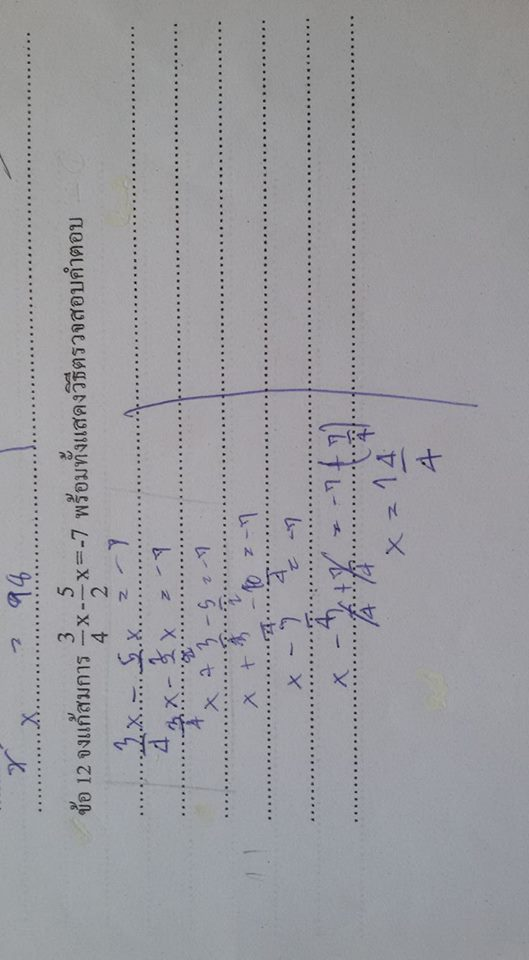 x = 98
ข้อ 12 จงแก้สมการ 3/4 x - 5/2 x = -7 พร้อมทั้งแสดงวิธีตรวจสอบคำตอบ
3/4 x - 5/2 x = -7
3/4 x - 5/2 x = -7
x + 3/4 - 5/2 = -7
x + 3/4 - 10/4 = -7
x - 7/4 = -7
= -7 + (7/4)
x =